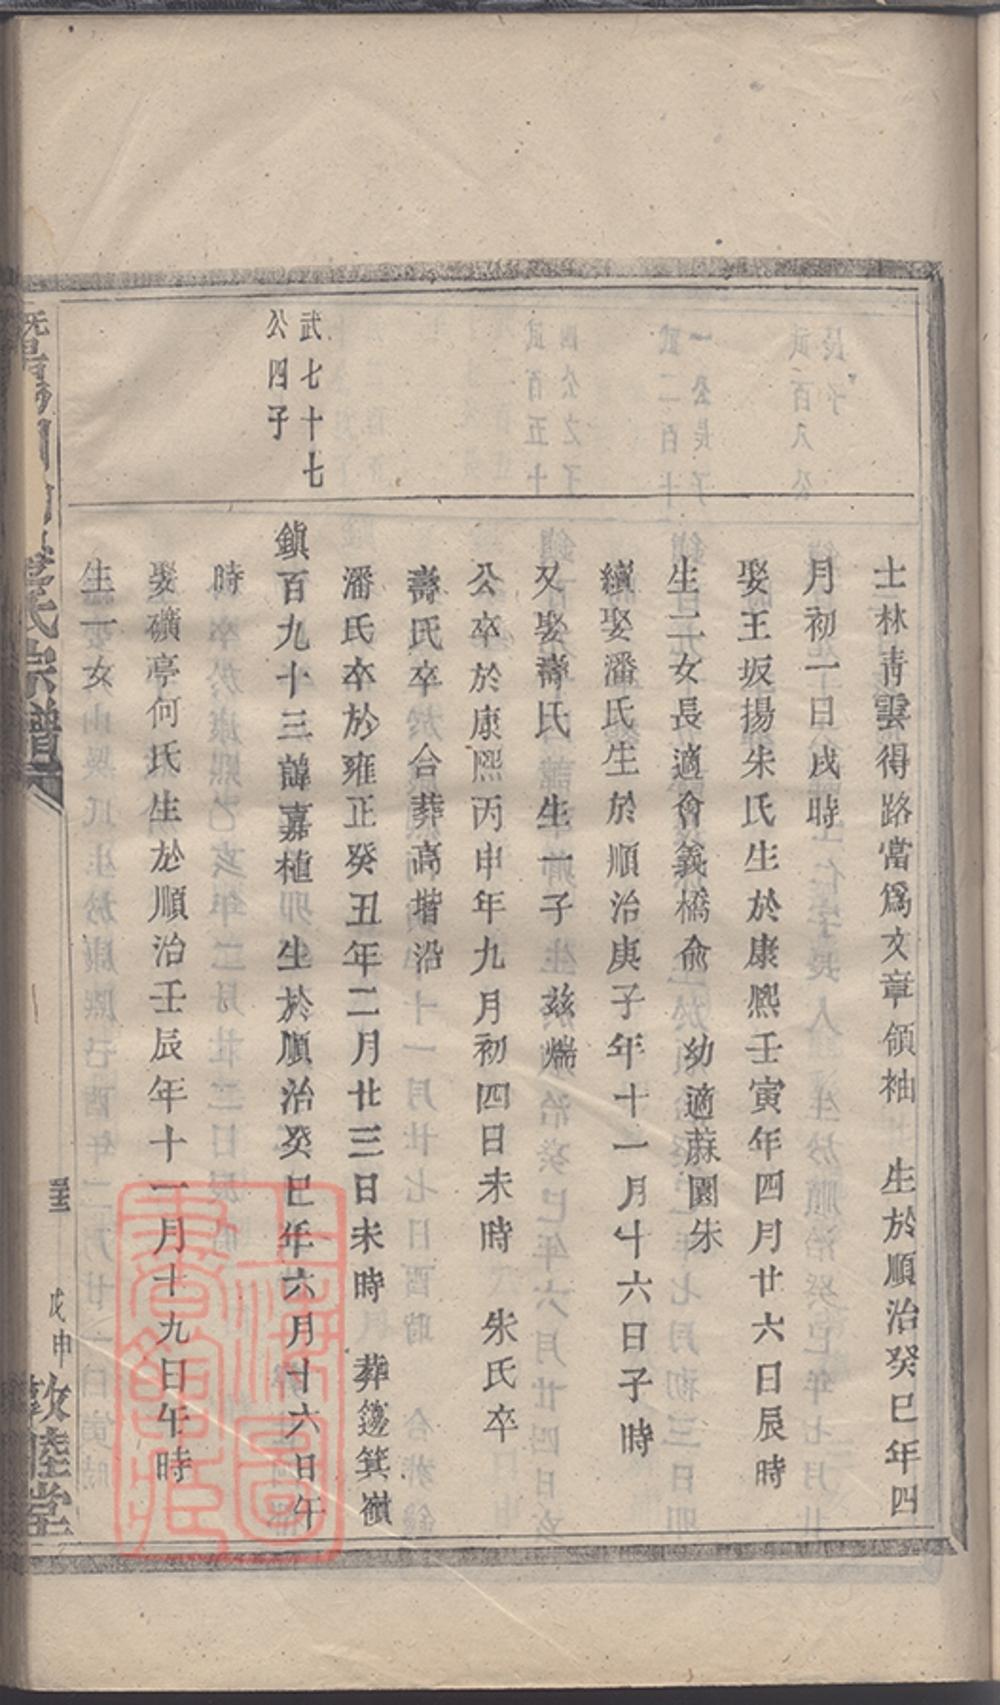 士林青雲得路當爲文章領袖 生於順治癸巳年四
月初一日戌時
娶王坂揚朱氏生於康熙壬寅年四月廿六日辰時
生二女長適會義橋俞 幼適蔴園朱
續娶潘氏生於順治庚子年十一月十六日子時
又娶壽氏 生一子 茲煓
公卒於康熙丙申年九月初四日未時 朱氏卒
壽氏卒 合葬高堦沿
潘氏卒於雍正癸丑年二月廿三日未時 葬籩箕嶺
武七十七
公四子
鎮百九十三諱嘉植 生於順治癸巳年六月十六日午
時
娶礦亭何氏生於順治壬辰年十一月十九日午時
生一女
氏宗譜
戊申
敦睦堂
上海圖書館藏